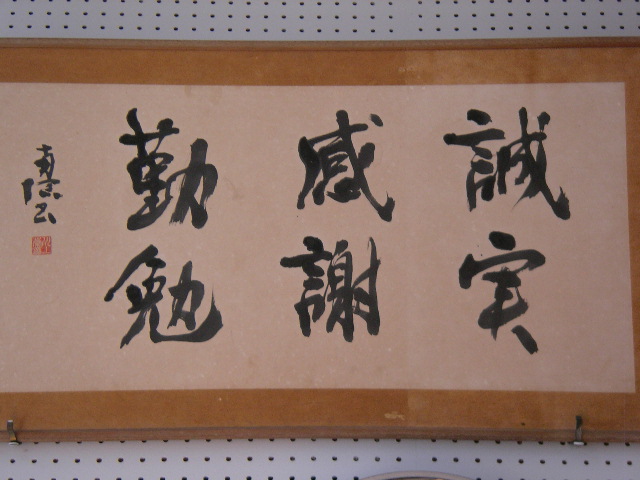 誠実
感謝
勤勉